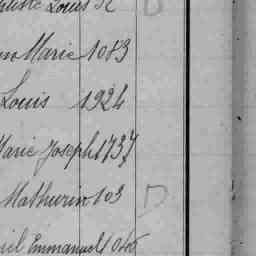 Louis
Marie 1083
Louis 1924
Marie Joseph 1737
Mathurin 103
Emmanuel